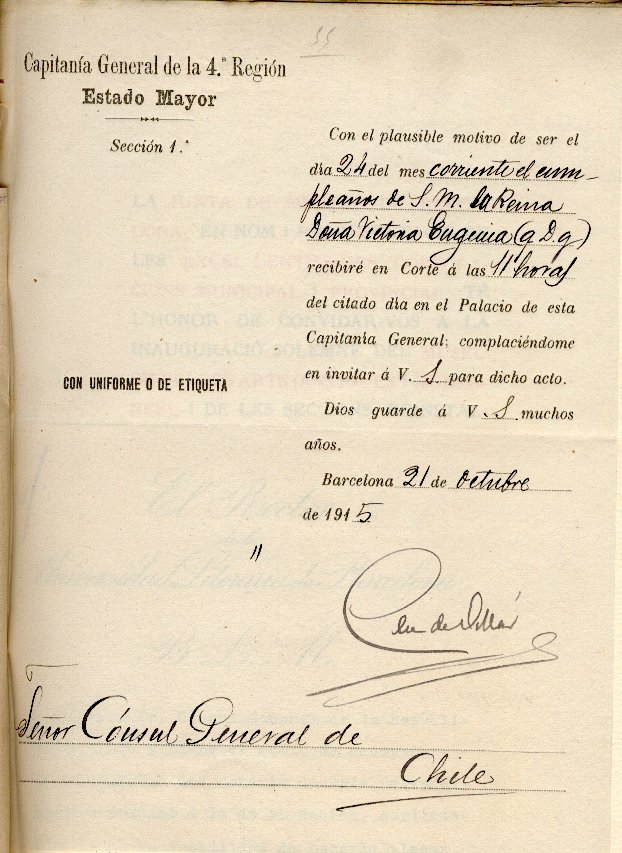 55
Capitanía General de la 4.ª Región
Estado Mayor
Sección 1.ª
Con el plausible motivo de ser el
día 24 del mes corriente el cum-
pleaños de S. M. la Reina
Doña Victoria Eugenia (q D g)
recibiré en Corte á las 11 horas
del citado día en el Palacio de esta
Capitanía General; complaciéndome
en invitar á V. S para dicho acto.
Dios guarde á V. S muchos
años.
Barcelona 21 de Octubre
de 1915
CON UNIFORME O DE ETIQUETA
Señor Cónsul General de
Chile